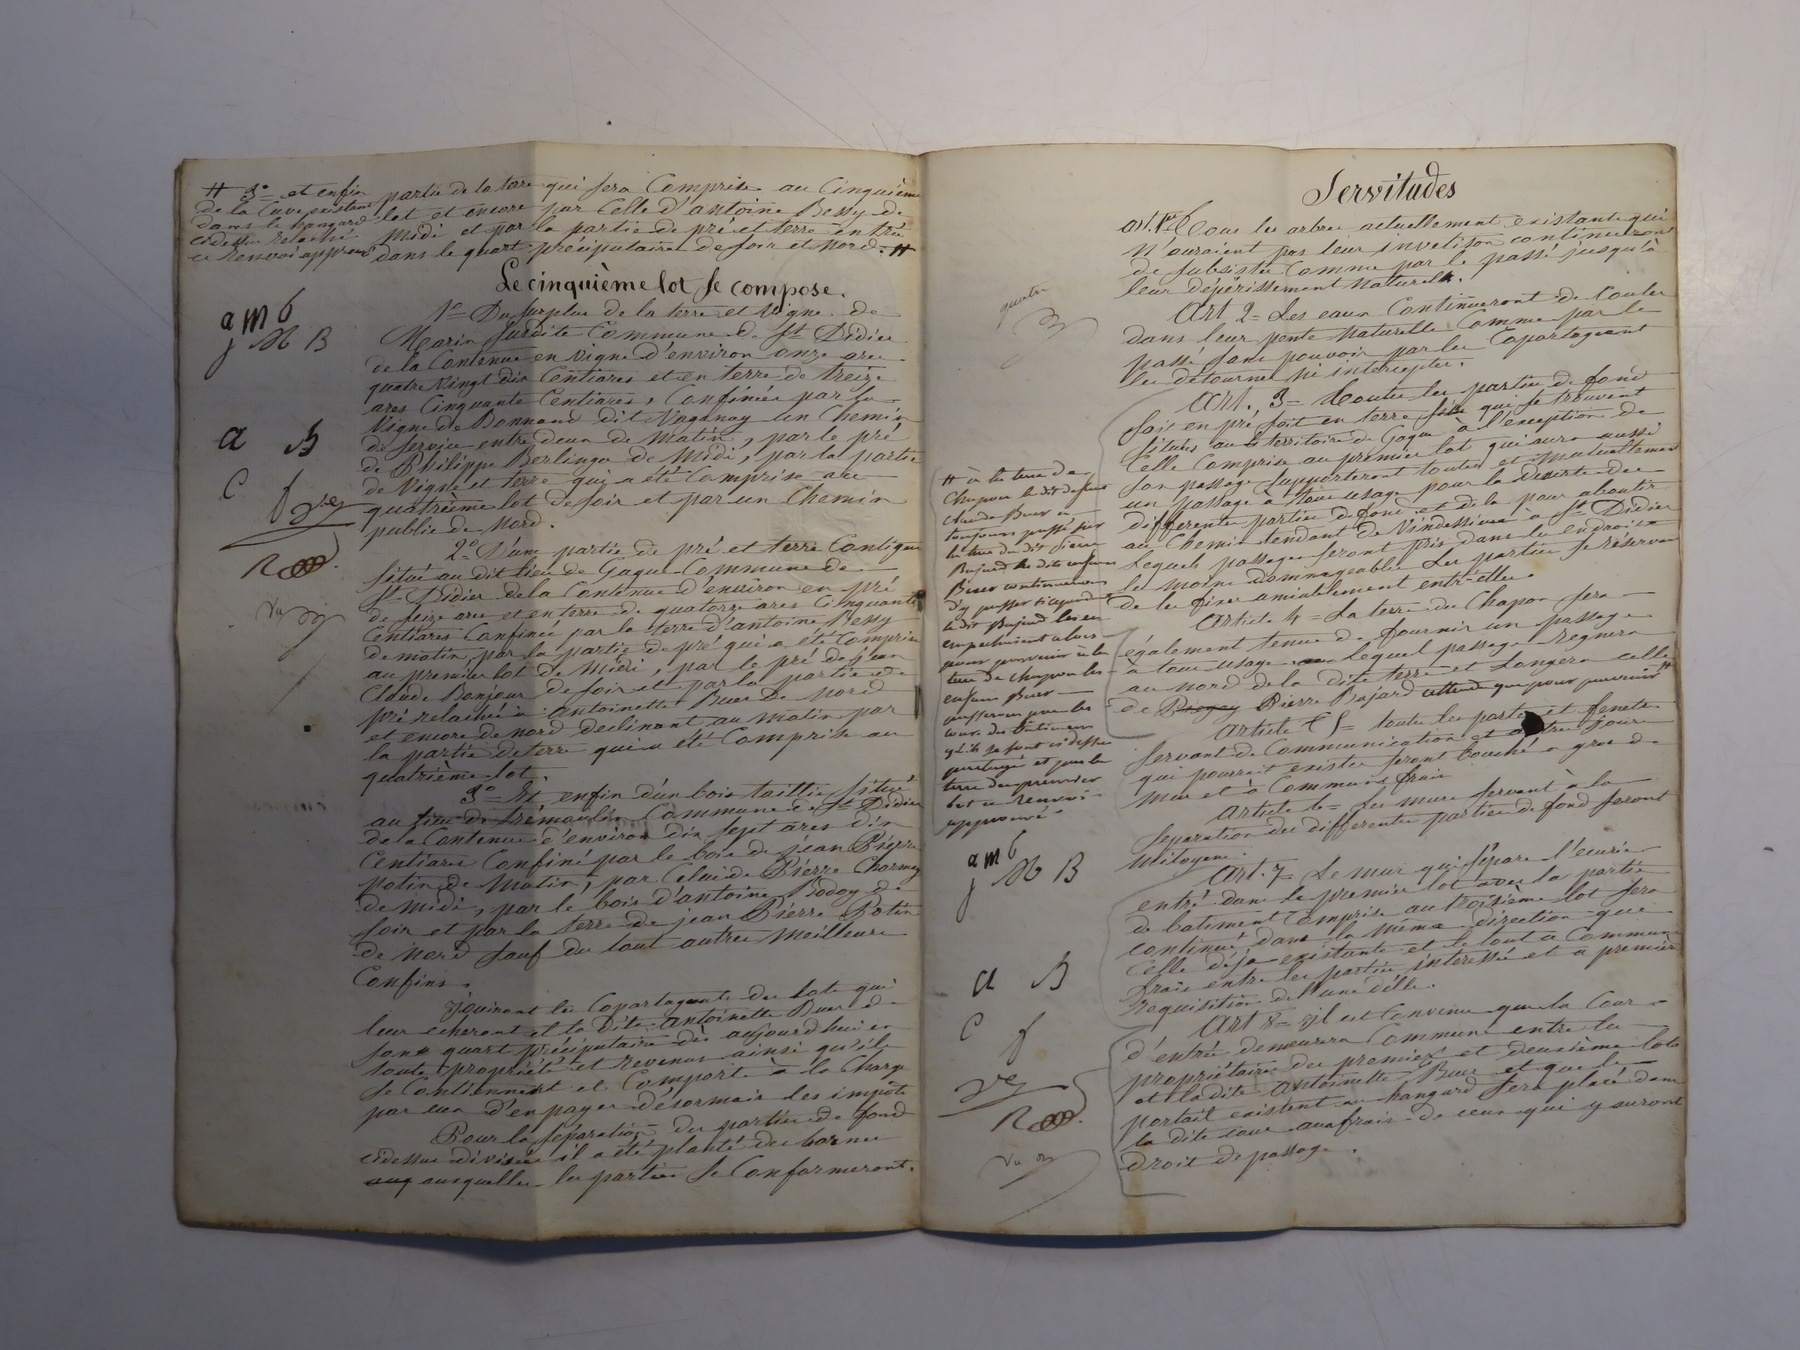 # 3° et enfin
de la Cuve existant
dans le hangard
ci dessus relaché
ce renvoi approuvé
partie de la terre qui sera Comprise au Cinquième
lot et encore par Celle d'antoine Bessy de
Midi et par la partie de pré et terre entrée
dans le quart préciputaire de soir et Nord. #
Le cinquième lot se compose.
1° Du surplus de la terre et Vigne de
Marin susdite Commune de St Didier
de la Contenue en vigne d'environ onze ares
quatre Vingt dix Centiares et en terre de treize
ares Cinquante Centiares, Confinée par la
Vigne de Bonnand dit Vaganay un Chemin
de service entre deux de Matin, par le pré
de Philippe Berlinga de Midi, par la partie
de Vigne et terre qui a été Comprise au
quatrième lot de soir et par un Chemin
public de Nord.
2° D'une partie de pré et terre Contigue
situé au dit lieu de Gague Commune de
St Didier de la Contenue d'environ en pré
de seize ares et en terre de quatorze ares Cinquante
Centiares Confinée par la terre d'antoine Bessy
de matin, par la partie de pré qui a été Comprise
au premier lot de Midi, par le pré de jean
Claude Bonjour de soir et par la partie de
pré relachée à antoinette Buer de Nord
et encore de nord déclinant au matin par
la partie de terre qui a été Comprise au
quatrième lot.
3° Et enfin d'un bois taillis situé
au lieu de Trémoulin Commune de St Didier
de la Contenue d'environ dix sept ares dix
Centiares Confiné par le bois de jean Pierre
Potin de Matin, par Celui de Pierre Charmy
de midi, par le bois d'antoine Bodoy de
soir et par la terre de jean Pierre Potin
de Nord sauf du tout autres Meilleurs
Confins.
jouiront les Copartageants des lots qui
leur écheront et la dite antoinette Buer de
son quart préciputaire dès aujourd'hui en
toute propriété et revenus ainsi qu'ils
se Contiennent et Comporte à la Charge
par eux d'en payer désormais les impôts
Pour la séparation des parties de fond
cidessus divisées il a été planté des bornes
auxquelles les parties se Conformeront.
jmb
M B
a B
C f
R
Vu
Servitudes
art. 1er Tous les arbres actuellement existants qui
N'auraient pas leur invetison continueront
de subsister Comme par le passé jusqu'à
leur dépérissement Naturels.
Art 2 = Les eaux Continueront de Couler
dans leur pente Naturelle Comme par le
passé sans pouvoir par les Copartageant
les détourner Ni intercepter.
Art. 3 = Toutes les parties de fond
soit en pré soit en terre qui se trouvent
situées au territoire de Gague à l'exception de
Celle Comprise au premier lot qui aura aussi
son passage supporteront toutes et Mutuellement
un passage à tous usage pour la Déserte des
différentes parties de fond et de là pour aboutir
au Chemin tendant de Véndessieux à St Didier
lequels passages seront pris dans les endroits
les moins dommageables Les parties se réservent
de les fixer amiablement entr'elles.
Article 4 = La terre du Chapon sera
également tenue de fournir un passage
à tous usage lequel passage Regnera
au nord de la dite terre et Longera celle
de Pierre Bajard attendu que pour parvenir #
Article 5 = toutes les portes et fenetres
servant de Communication et autres jours
qui pourrait exister seront bouchés a gros de
Mur et à Communs frais
Article 6 = Les murs servant à la
séparation des différentes parties de fond seront
Mitoyens.
Art. 7 = Le mur qui sépare l'écurie
entré dans le premier lot avec la partie
de batiment Comprise au troisième lot sera
continué dans la même direction que
Celle déjà existante et le tout à Communs
frais entre les parties intéressées et a première
Requisition de l'une d'elle.
Art 8 = il est Convenu que la Cour
d'entrée demeurera Commune entre les
propriétaires des premier et deuxième lots
et la dite Antoinette Buer et que le
portait existent au hangard sera placé dans
la dite cour aux frais de ceux qui y auront
droit de passage.
# à la terre de
Chapon le dit défunt
Claude Buer a
toujours passé sur
la terre du dit Pierre
Bajard les dits enfans
Buer continueront
d'y passer si cependant
le dit Bajard les en
empechaient alors
pour parvenir à la
terre de chapon les
enfans Buer
passeront par les
cours des batiments
qu'ils se sont ci dessus
partagés et par la
terre du premier
lot ce renvoi
approuvé
jmb
M B
a B
C f
R
Vu